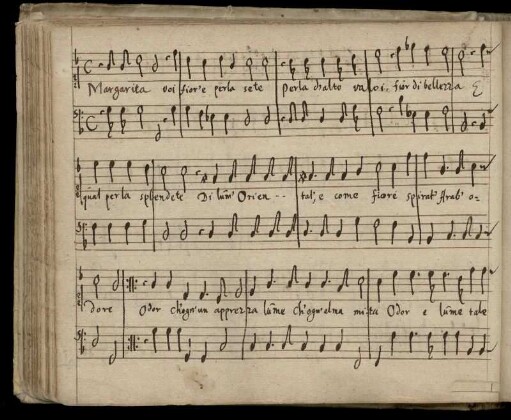 Margarita voi fior'e perla sete Perla d'alto valor, fior di bellezza E
qual perla splendete Di lum' Orien - - tal; e come fiore spirat' Arab' o=
dore Odor ch'ogn'un apprezza lume ch'ogn'alma Odor e lume tale